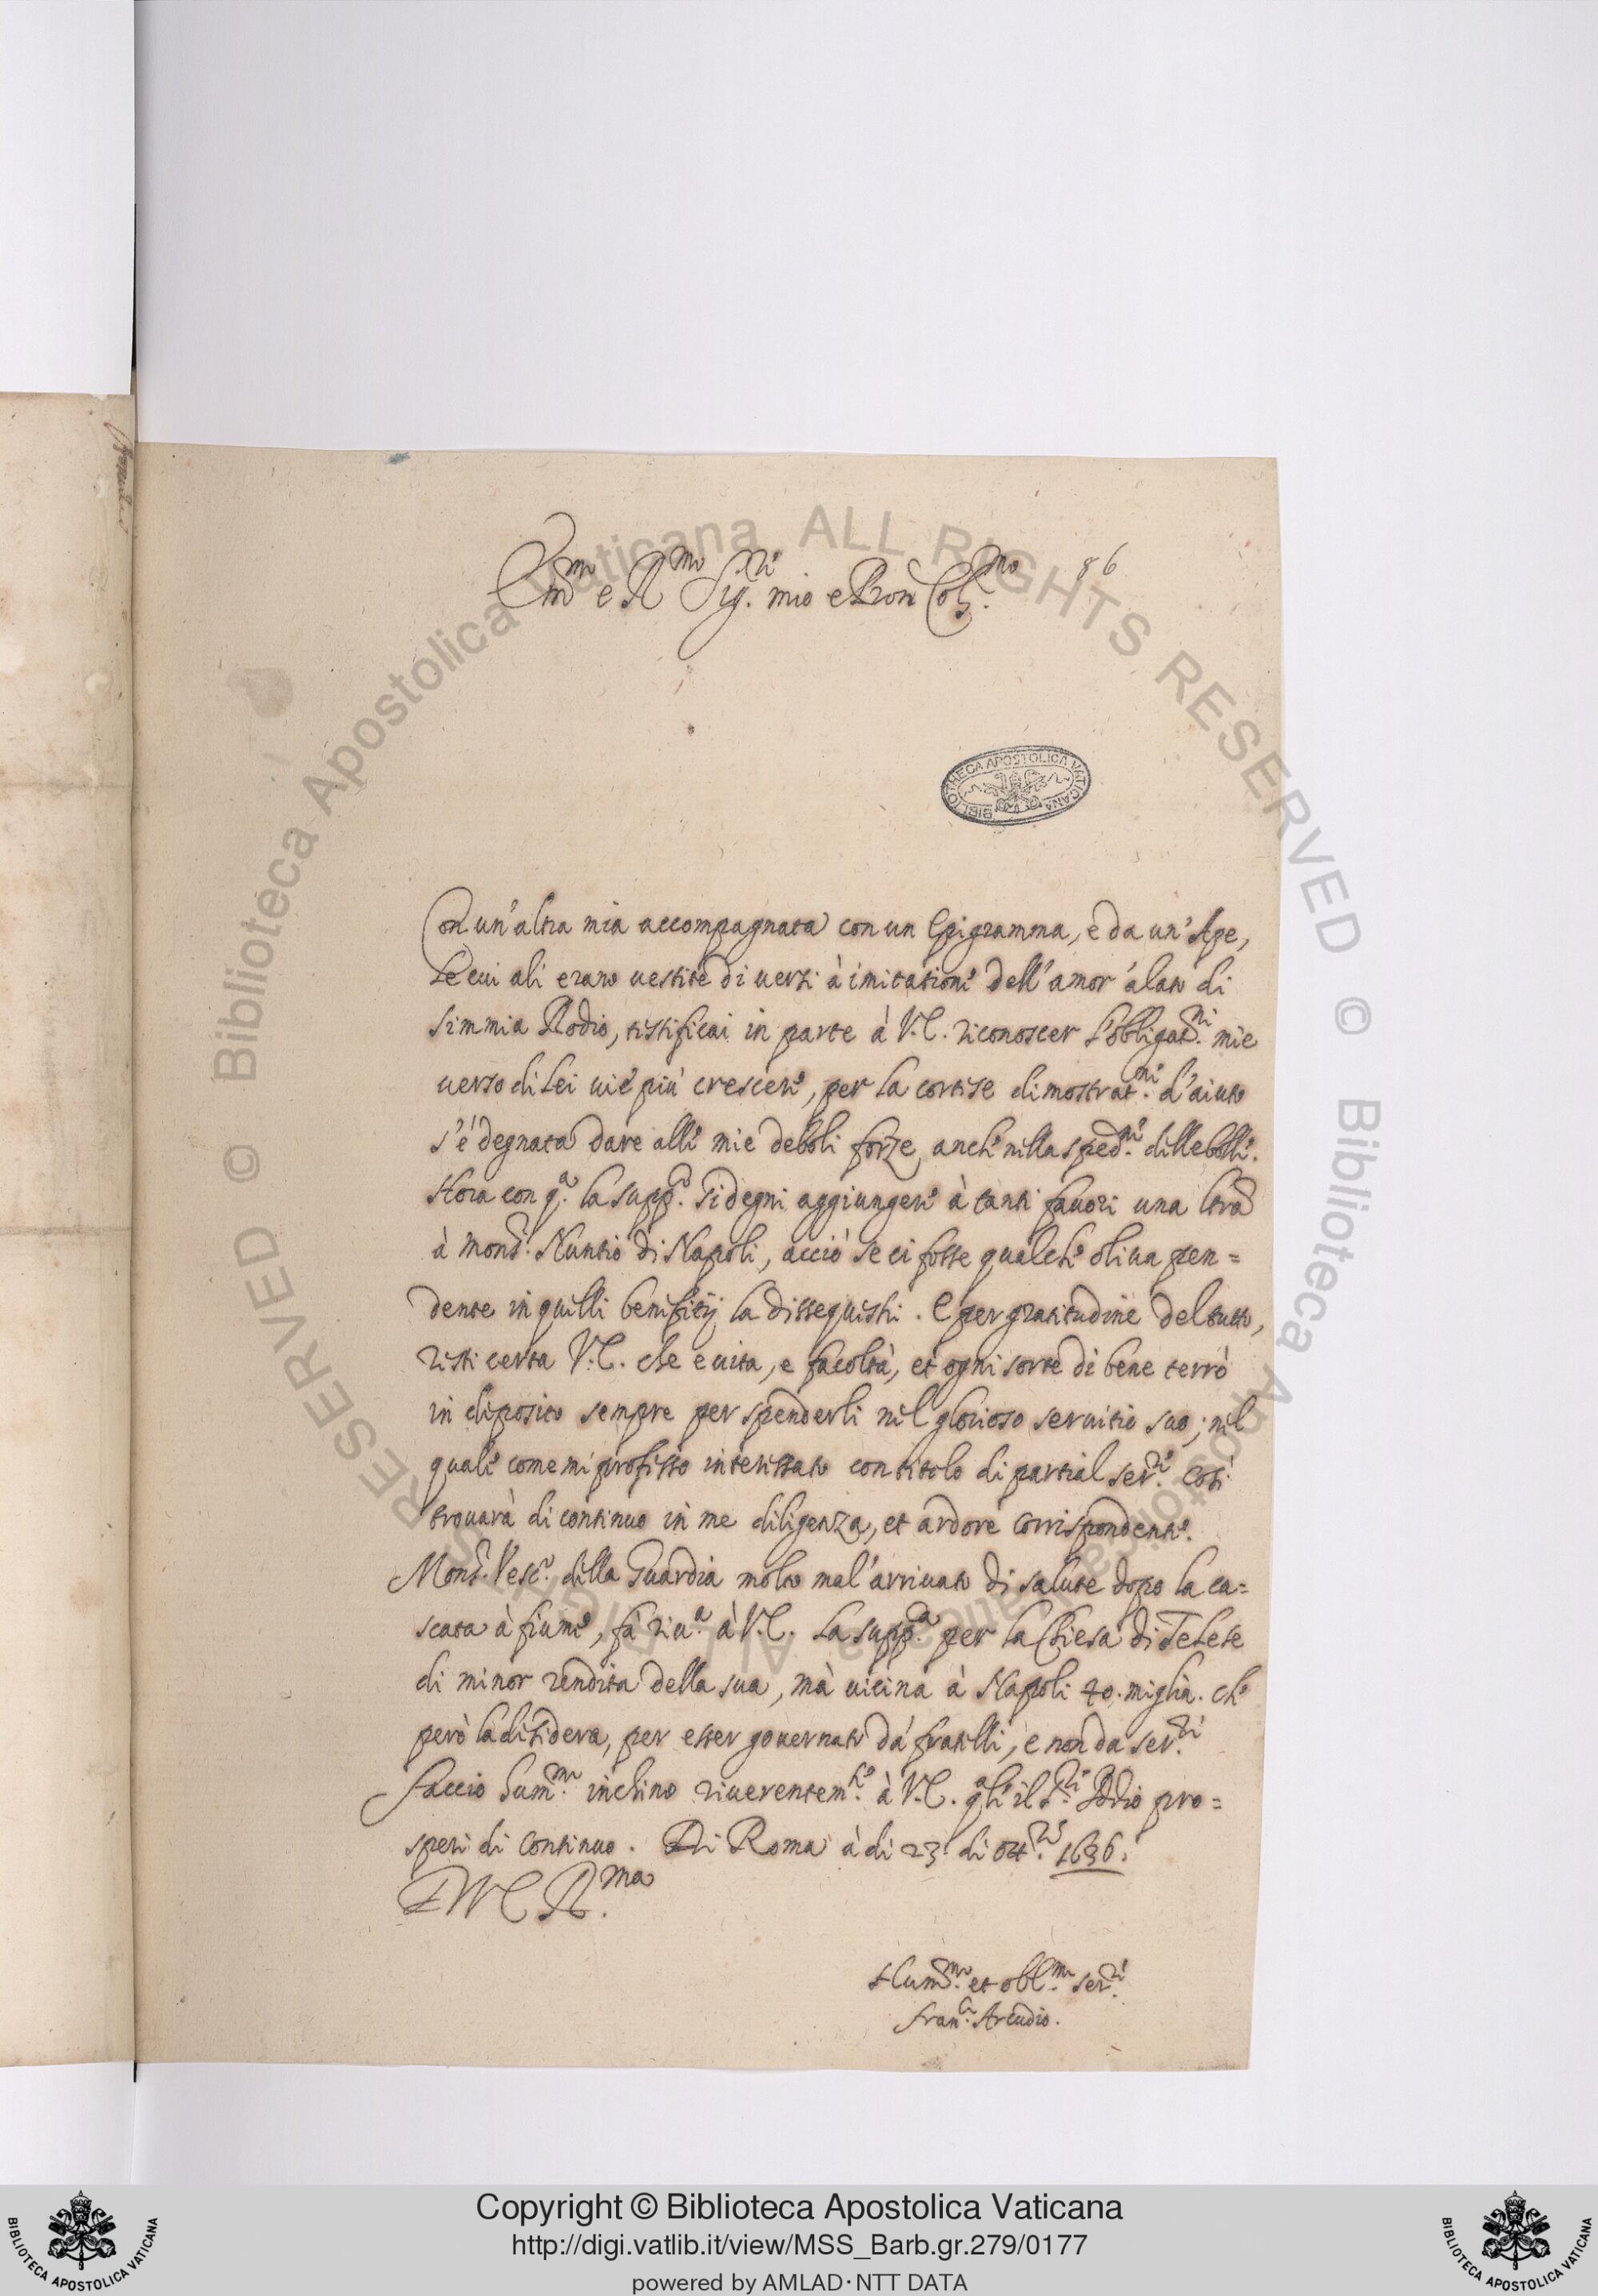 86
Em.mo e R.mo Sig.re mio e Pron Col.mo
BIBLIOTHECA APOSTOLICA VATICANA
Con un'altra mia accompagnata con un Epigramma, e da un'Ape,
le cui ali erano uestite di uersi à imitatione dell'amor alato di
Simmia Rodio, testificai in parte à V.E. riconoscer l'obligat.ni mie
uerso di Lei uie più crescere, per la cortese dimostrat.ne d'aiuto
s'è degnata dare alle mie deboli forze, anche nella sped.ne delle bolle.
Hora con q.a la supp.o si degni aggiungere à tanti fauori una lra
à Mons.r Nuntio di Napoli, acciò se ci fosse qualche oliua pen=
dente in quelli benefitij la disseguischi. E per gratitudine del tutto,
resti certa V.E. che e uita, e facoltà, et ogni sorte di bene terrò
in deposito sempre per spenderli nel glorioso seruitio suo; nel
quale come mi professo interessato con titolo di partial ser.re così
trouarà di continuo in me diligenza, et ardore corrispondente.
Mons.r Vesc.o della Guardia molto mal'arriuato di salute dopo la ca=
scata à fiume, fà riu.a à V.E. la supp.a per la Chiesa di Telese
di minor rendita della sua, mà uicina à Napoli 40. miglia. che
però la desidera, per esser gouernato da fratelli, e non da ser.ri
faccio hum.mo inchino riuerentem.te à V.E. q.ale il S.re Iddio pro=
speri di continuo. Di Roma à di 23. di ott.re 1636.
D V E R.ma
Hum.mo et obl.mo ser.re
Fran.co Arcudio.
ALL RIGHTS RESERVED © Biblioteca Apostolica Vaticana
Copyright © Biblioteca Apostolica Vaticana
http://digi.vatlib.it/view/MSS_Barb.gr.279/0177
powered by AMLAD·NTT DATA
BIBLIOTECA APOSTOLICA VATICANA
BIBLIOTECA APOSTOLICA VATICANA